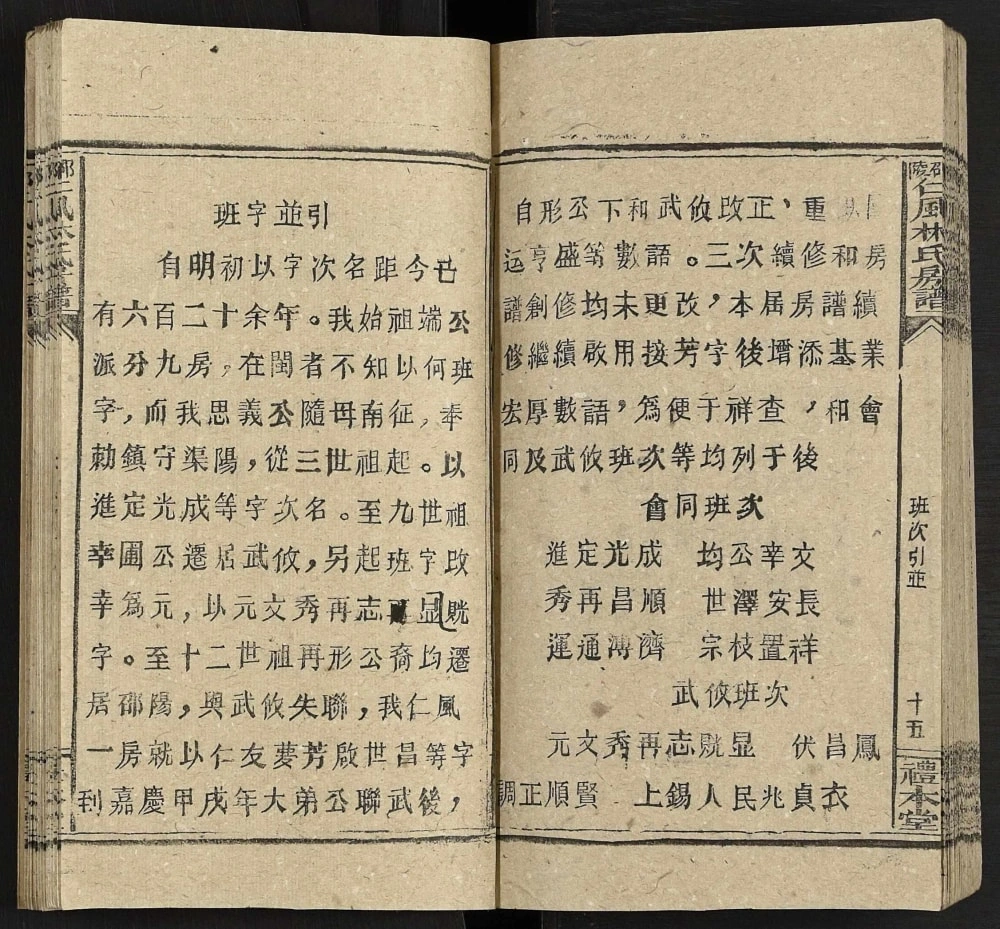 班字並引
自明初以字次名距今已
有六百二十余年。我始祖端公
派分九房，在閩者不知以何班
字，而我思義公隨母南征，奉
勅鎮守渠陽，從三世祖起。以
進定光成等字次名。至九世祖
幸圃公遷居武攸，另起班字改
幸爲元，以元文秀再志显貺
字。至十二世祖再形公裔均遷
居邵陽，與武攸失聯，我仁風
一房就以仁友夢芳啟世昌等字
到嘉慶甲戌年大弟公聯武後，
自形公下和武攸改正，重
运亨盛等數語。三次續修和房
譜創修均未更改，本届房譜續
修繼續啟用接芳字後增添基業
宏厚數語，爲便于祥查，和會
同及武攸班次等均列于後
會同班次
進定光成 均公幸文
秀再昌順 世澤安長
運通溥濟 宗枝置祥
武攸班次
元文秀再志貺显 伏昌鳳
調正順賢 上錫人民兆貞衣
邵陵仁風林氏房譜
班次引並
十五
禮本堂